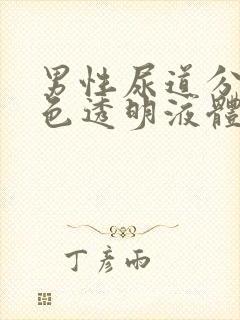 男性尿道分
色透明液體
丁彥雨